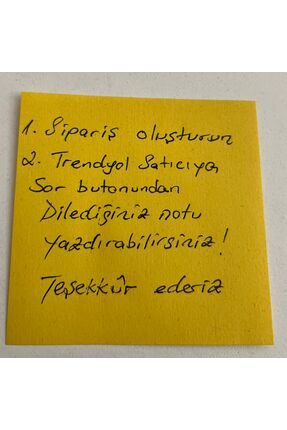 1. Sipariş oluşturun
2. Trendyol Satıcıya
Sor butonundan
Dilediğiniz notu
yazdırabilirsiniz!
Teşekkür ederiz